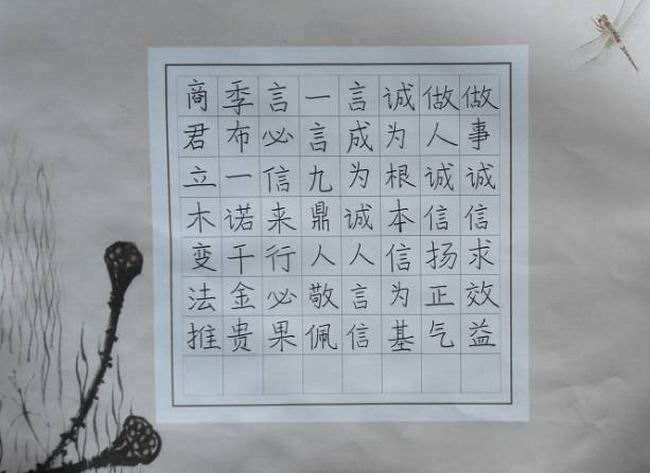 做事诚信求效益
做人诚信扬正气
诚为根本信为基
言成为诚人言信
一言九鼎人敬佩
言必信来行必果
季布一诺千金贵
商君立木变法推